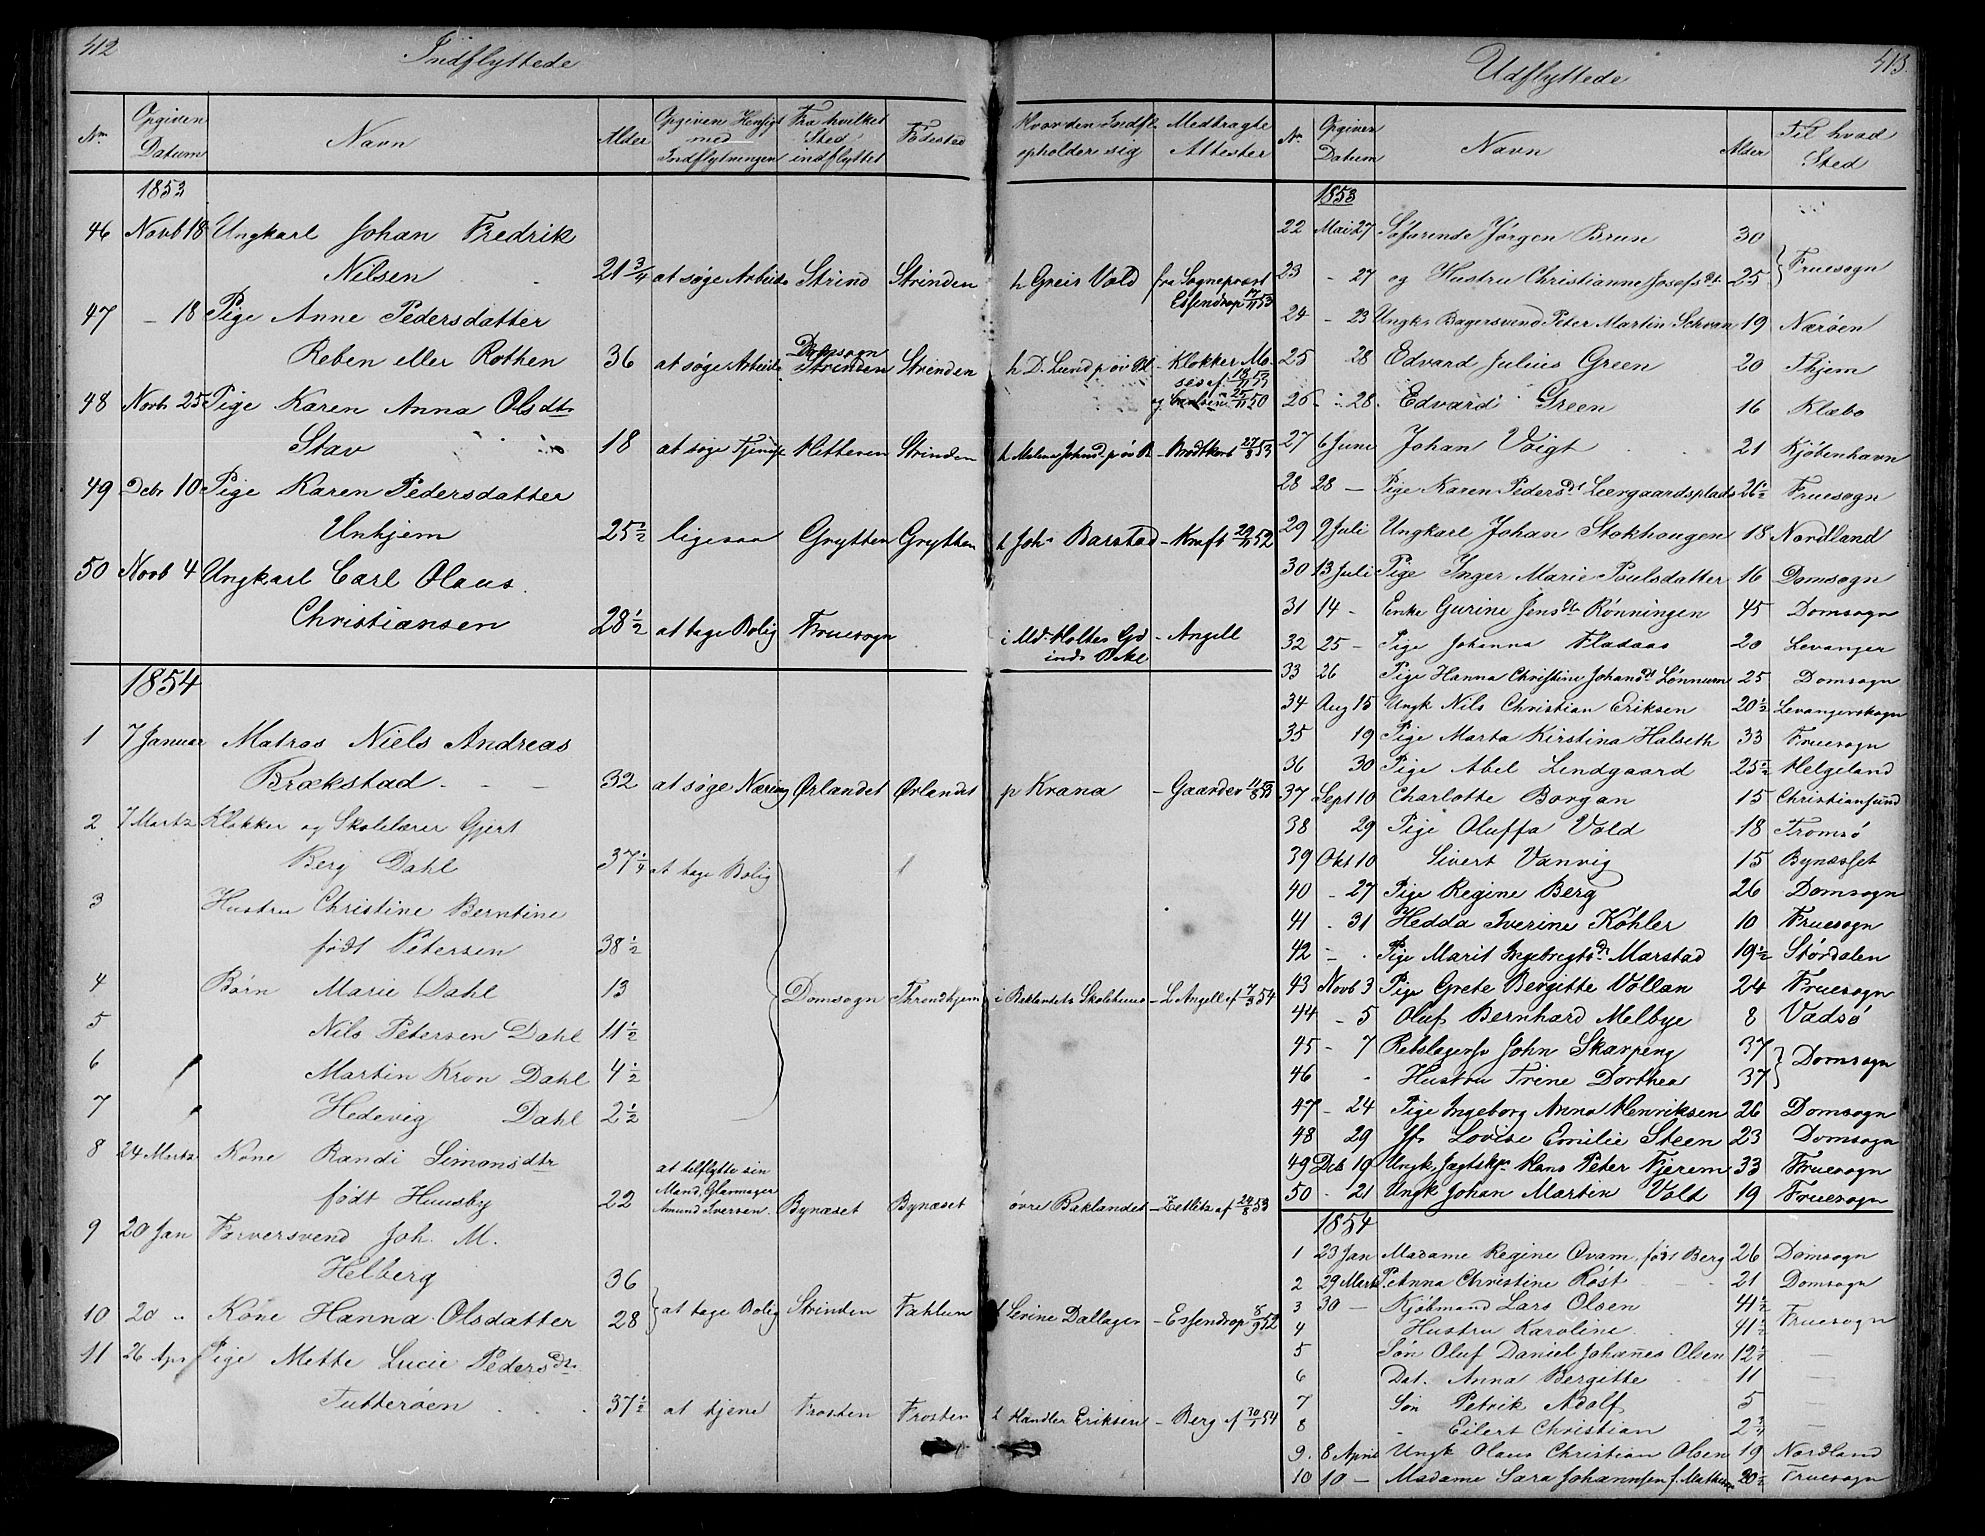 412
Indflyttede
Nr. Opgiven Datum Navn Alder Opgiven Hensigt med Indflytningen Fra hvilket Sted indflyttet Fødested Hvor den Indfl. opholder sig Medbragte Attester
1853
46 Novb 18 Ungkarl Johan Fredrik
Nilsen 21 3/4 at søge Arbeide Strind Strinden h Greis Vold fra Sogneprest
Essendrop 17/11 53
47 - 18 Pige Anne Pedersdatter
Reben eller Rothen 36 at søge Arbeide Domsogn Strinden Strinden h D. Lund p øv Bl - Klokker
48 Novb 25 Pige Karen Anna Olsdtr
Stav 18 at søge Tjeneste Hitteren Strinden - Brodtkorb 27/8 53
49 Debr 10 Pige Karen Pedersdatter
Unhjem 25 1/2 ligesaa Grytten Grytten h Johs Barstad - Kraft 29/11 52
50 Novb 4 Ungkarl Carl Olaus
Christiansen 28 1/2 at tage Bolig Fruesogn i Md. Holtes Gd - Angell
inds Bakl
1854
1 7 Januar Matros Niels Andreas
Brækstad 32 at søge Næring Ørlandet Ørlandet p Krana - Gaarder 11/8 53
2 7 Martz Klokker og Skolelærer Gjert
Berg Dahl 37 1/4 at tage Bolig
3 Hustru Christine Berntine
født Petersen 38 1/2
4 Børn Marie Dahl 13 Domsogn Throndhjem i Baklandets Skolehuus - L Angell af 7/3 54
5 Nils Petersen Dahl 11 1/2
6 Martin Kron Dahl 4 1/2
7 Hedevig Dahl 2 1/2
8 24 Martz Kone Randi Simonsdtr at tilflytte sin
født Huusby 22 Mand, Glarmager Amund Iversen Bynæset Bynæset øvre Baklandet - Zetlitz af 24/8 53
9 20 Jan Farversvend Joh. M.
Helberg 36
10 20 " Kone Hanna Olsdatter 28 at tage Bolig Strinden Fahlun h Serine Dallager - Essendrop 8/9 52
11 26 Apr Pige Mette Lucie Pedersdtr
Tutterøen 37 1/2 at tjene Frosten Frosten h Handler Eriksen - Berg af 30/1 54
413.
Udflyttede
Nr. Opgiven Datum Navn Alder Til hvad Sted
1853
22 Mai 27 Søfarende Jørgen Brun 30
23 - 27 og Hustru Christianne Josefsdt. 25 } Fruesogn
24 - 23 Ungk. Bagersvend Peter Martin Schvan 19 Nærøen
25 28 Edvard Julius Green 20 Thjem
26 - 28 Edvard Green 16 Klæbo
27 6 Juni Johan Voigt 21 Kjøbenhavn
28 28 — Pige Karen Pedersdt Leergaardsplads 26 1/2 Fruesogn
29 9 Juli Ungkarl Johan Stokhougen 18 Nordland
30 13 Juli Pige Inger Marie Poulsdatter 16 Domsogn
31 14 - Enke Gurine Jensdtr Rønningen 45 Domsogn
32 25 - Pige Johanna Fladaas 20 Levanger
33 26 Pige Hanna Christine Johansdt Lønnum 25 Domsogn
34 Aug 15 Ungk Nils Christian Eriksen 20 1/2 Levangerskogn
35 19 Pige Marta Kirstina Halseth 33 Fruesogn
36 30 Pige Abel Lindgaard 25 1/2 Helgeland
37 Sept 10 Charlotte Borgan 15 Christiansund
38 29 Pige Oluffa Vold 18 Tromsø
39 Okt 10 Sivert Vanvig 15 Bynæsset
40 - 27 Pige Regine Berg 26 Domsogn
41 . 31 Hedda Iverine Køhler 10 Fruesogn
42 - . Pige Marit Ingebrigtsdt. Marstad 19 1/2 Størdalen
43 Novb 3 Pige Grete Bergitte Vollan 24 Fruesogn
44 - 5 Oluf Bernhard Melbye 8 Vadsø
45 - 7 Rebslagersv John Skarpeng 37
46 Hustru Trine Dorthea 37 } Domsogn
47 - 24 Pige Ingeborg Anna Henriksen 26 Domsogn
48 29 Jfr Lovise Emilie Steen 23 Domsogn
49 Deb 19 Ungk. Jægtskpr Hans Peter Fjerem 33 Fruesogn
50 - 21 Ungk Johan Martin Vold 19 Fruesogn
1854
1 23 Jan Madame Regine Qvam født Berg 26 Domsogn
2 29 Marts P. Anna Christine Røst 21 Domsogn
3 30 — Kjøbmand Lars Olsen 41 1/2
4 Hustru Karoline 41 1/2 Fruesogn
5 Søn Oluf Daniel Johannes Olsen 12 1/2 —
6 Dat. Anna Bergitte 11 —
7 Søn Petrik Adolf 5 —
8 - Eilert Christian 2 3/4 —
9. 8 April Ungk Olaus Christian Olsen 19 Nordland
10 10 — Madame Sara Johannsen f. 20 1/2 Fruesogn